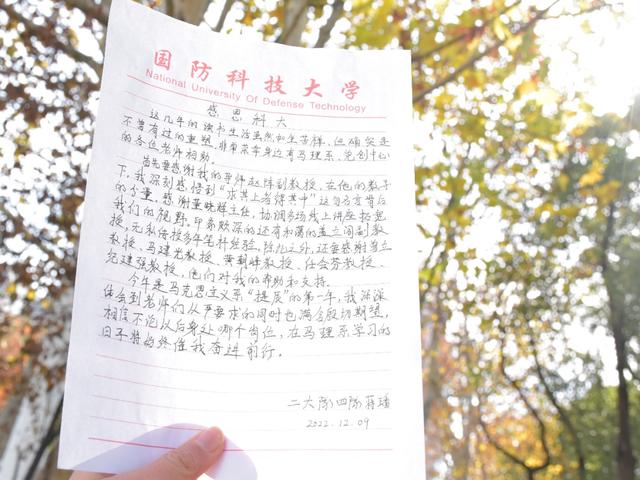 国防科技大学
National University Of Defense Technology
感恩科大
这几年的读书生活虽然如生苦样,但确实是
不曾有过的重塑,非常荣幸身边有马理系、党创中心
的各位老师相助。
首先要感谢我的导师赵阵副教授,在他的教导
下,我深刻感悟到“求其上者得其中”这句方言背后
的分量。感谢董晓辉主任,协调多场线上讲座拓宽
我们的视野。印象颇深的还有和蔼的孟立闻副教
授,无私传授多年笔朴经验。除此之外,还要感谢曾立
教授、马建光教授、黄朝峰教授、任会芬教授、
纪建强教授,他们对我的帮助和支持。
今年是马克思主义系“提质”的第一年,我深深
体会到老师们从严要求的同时也满含殷切期望,
相信不论以后身处哪个岗位,在马理系学习的
日子将始终催我奋进前行。
二大队四队蒋璠
2022.12.09